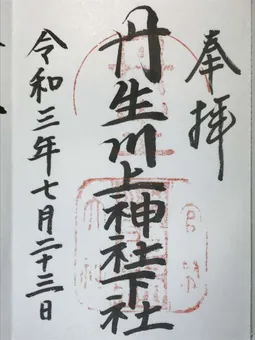 奉拝
丹生川上神社下社
令和三年七月二十三日